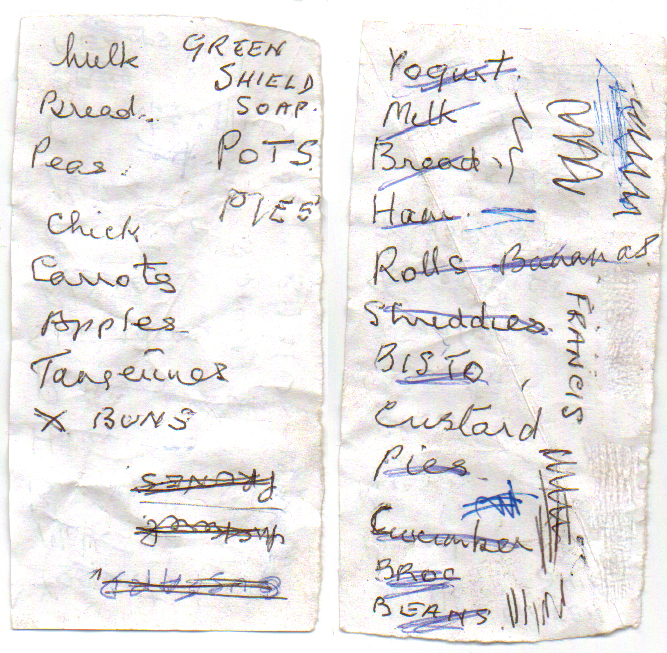 Milk
Bread
Peas
Chick
Carrots
Apples
Tangerines
X BUNS
GREEN
SHIELD
SOAP.
POTS
PIES
PRUNES
Yogurt.
Milk
Bread.
Ham.
Rolls Bananas
Shreddies
BISTO
Custard
Pies
Cucumber
BROC
BEANS
FRANCIS